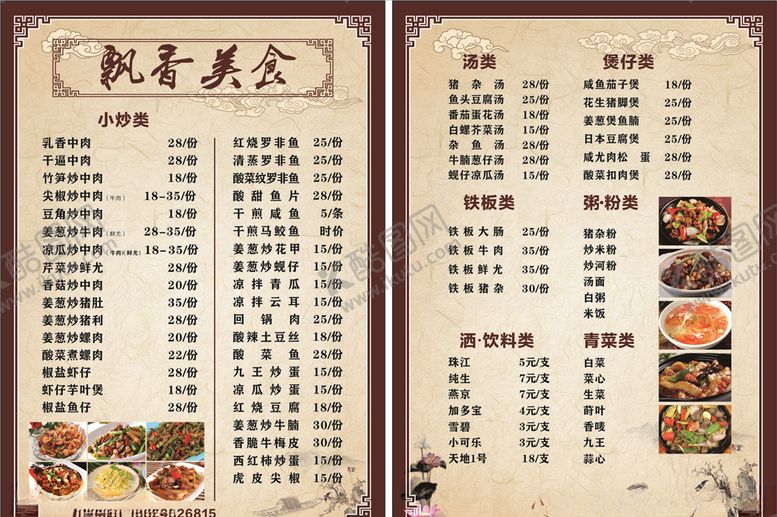 飘香美食
小炒类
乳香中肉 28/份
干逼中肉 28/份
竹笋炒中肉 18/份
尖椒炒中肉(牛肉) 18-35/份
豆角炒中肉 18/份
姜葱炒牛肉(鲜尤) 28-35/份
凉瓜炒中肉(牛肉)(鲜尤) 18-35/份
芹菜炒鲜尤 28/份
香菇炒中肉 20/份
姜葱炒猪肚 35/份
姜葱炒猪利 28/份
姜葱炒螺肉 20/份
酸菜煮螺肉 22/份
椒盐虾仔 28/份
虾仔芋叶煲 18/份
椒盐鱼仔 28/份
红烧罗非鱼 25/份
清蒸罗非鱼 25/份
酸菜纹罗非鱼 25/份
酸甜鱼片 28/份
干煎咸鱼 5/条
干煎马鲛鱼 时价
姜葱炒花甲 15/份
姜葱炒蚬仔 15/份
凉拌青瓜 15/份
凉拌云耳 15/份
回锅肉 25/份
酸辣土豆丝 18/份
酸菜鱼 28/份
九王炒蛋 15/份
凉瓜炒蛋 15/份
红烧豆腐 18/份
姜葱炒牛腩 30/份
香脆牛梅皮 30/份
西红柿炒蛋 15/份
虎皮尖椒 15/份
汤类
猪杂汤 28/份
鱼头豆腐汤 25/份
番茄蛋花汤 15/份
白螺芥菜汤 15/份
杂鱼汤 28/份
牛腩葱仔汤 28/份
蚬仔凉瓜汤 15/份
煲仔类
咸鱼茄子煲 18/份
花生猪脚煲 25/份
姜葱煲鱼腩 25/份
日本豆腐煲 25/份
咸尤肉松蛋 28/份
酸菜扣肉煲 28/份
铁板类
铁板大肠 25/份
铁板牛肉 35/份
铁板鲜尤 35/份
铁板猪杂 30/份
粥·粉类
猪杂粉
炒米粉
炒河粉
汤面
白粥
米饭
洒·饮料类
珠江 5元/支
纯生 7元/支
燕京 5元/支
加多宝 4元/支
雪碧 3元/支
小可乐 3元/支
天地1号 18/支
青菜类
白菜
菜心
生菜
莳叶
香唛
九王
蒜心